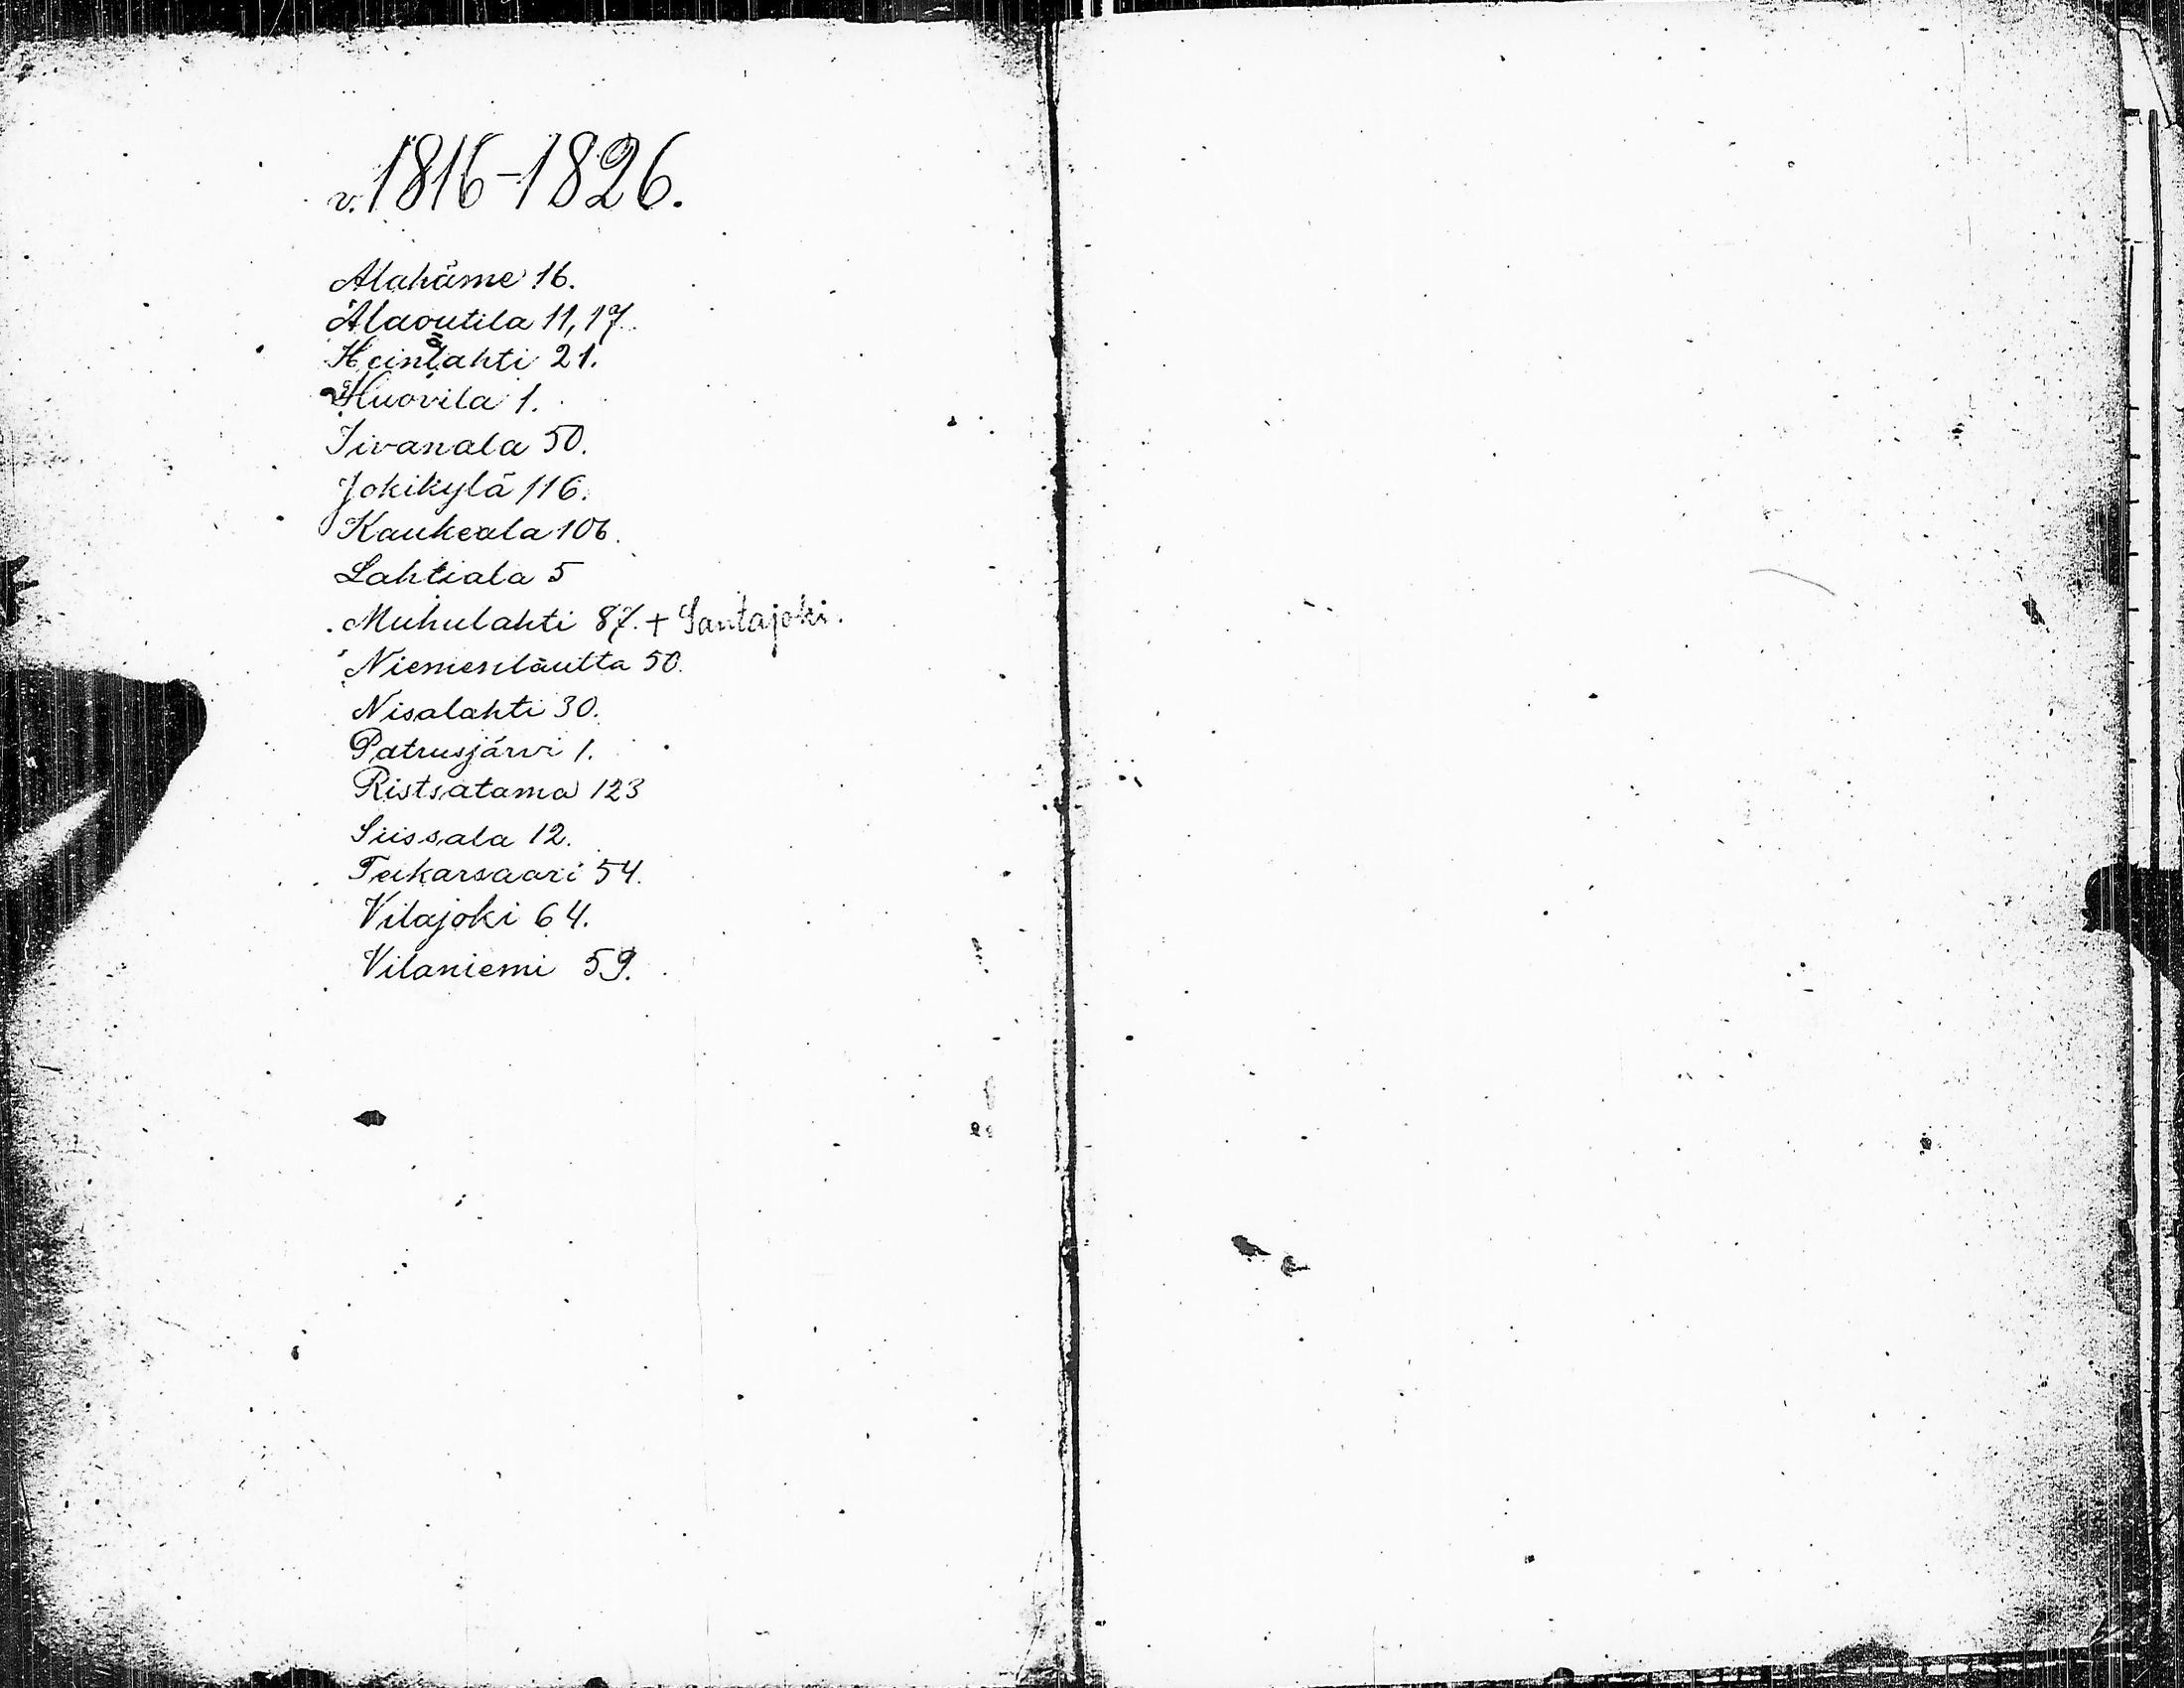 v. 1816-1826.
Alahäme 16.
Alaoutila 11, 17.
Heinälahti 21.
Huovila 1.
Iivanala 50.
Jokikylä 116.
Kaukeala 106.
Lahtiala 5
Muhulahti 87. + Santajoki.
Niemenlautta 50.
Nisalahti 30.
Patrusjärvi 1.
Ristsatama 123
Siissala 12.
Teikarsaari 54.
Vilajoki 64.
Vilaniemi 59.